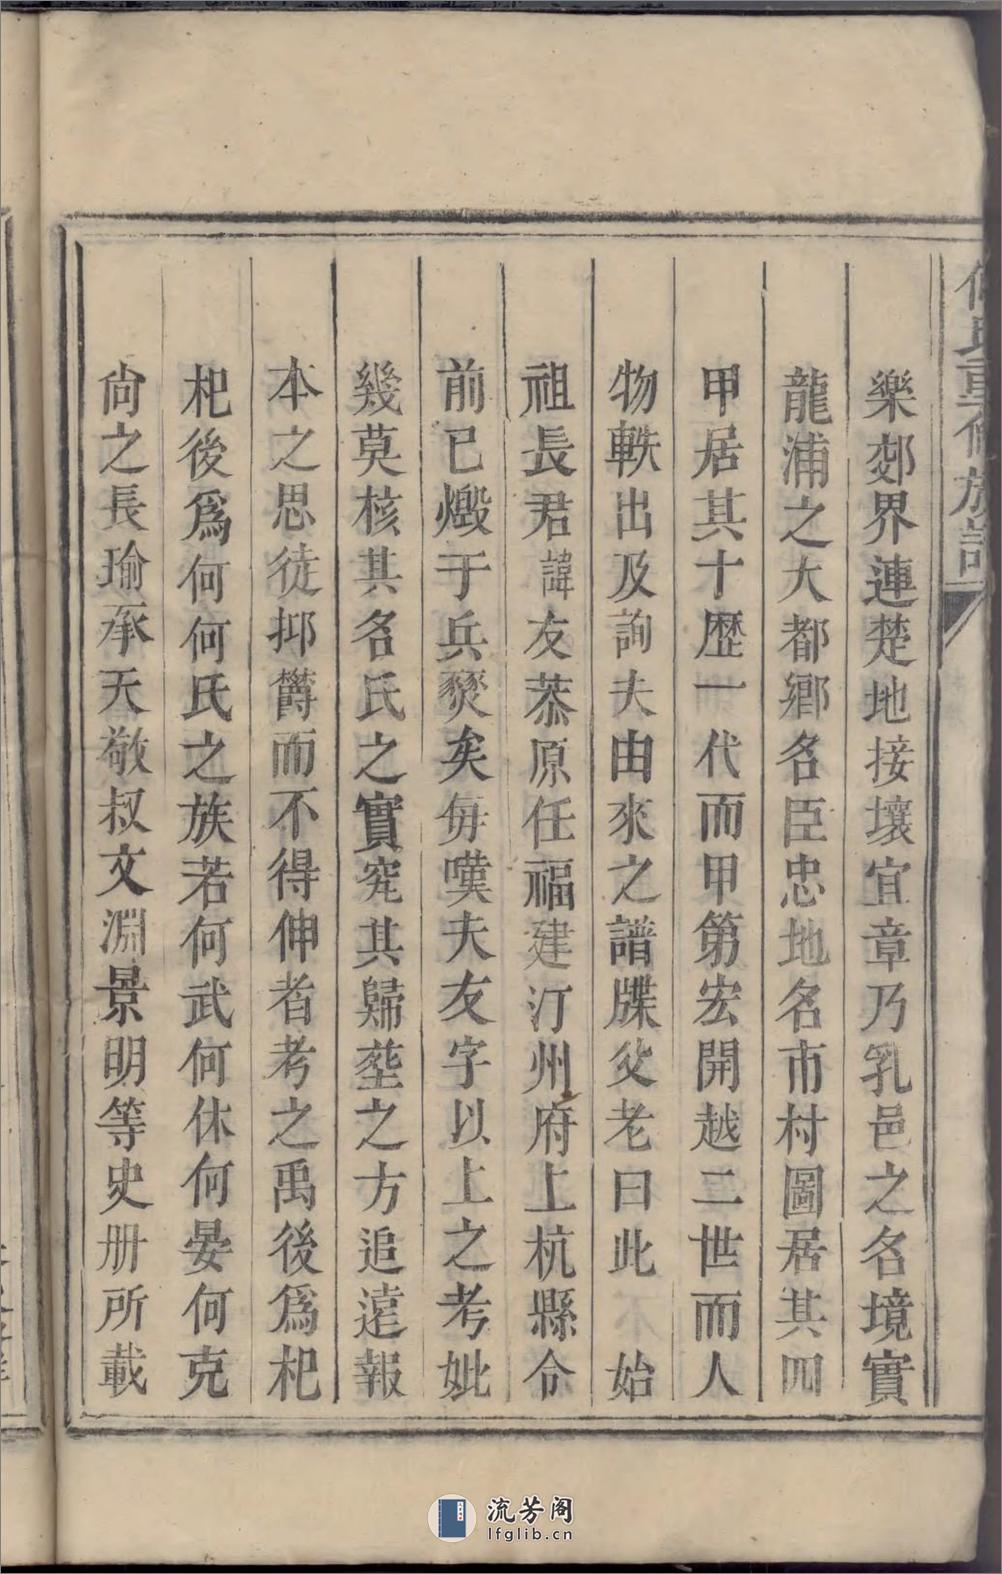 何氏重修族譜
樂郊界連楚地接壤宜章乃乳邑之名境實
龍浦之大都鄉名臣忠地名市村圖居其四
甲居其十歷一代而甲第宏開越二世而人
物軼出及詢夫由來之譜牒父老曰此 始
祖長君諱友恭原任福建汀州府上杭縣令
前已燬于兵燹矣每嘆夫友字以上之考妣
幾莫核其名氏之實究其歸塟之方追遠報
本之思徒抑欝而不得伸者考之禹後爲杞
杞後爲何何氏之族若何武何休何晏何克
尙之長瑜承天敬叔文淵景明等史册所載
流芳阁
lfglib.cn